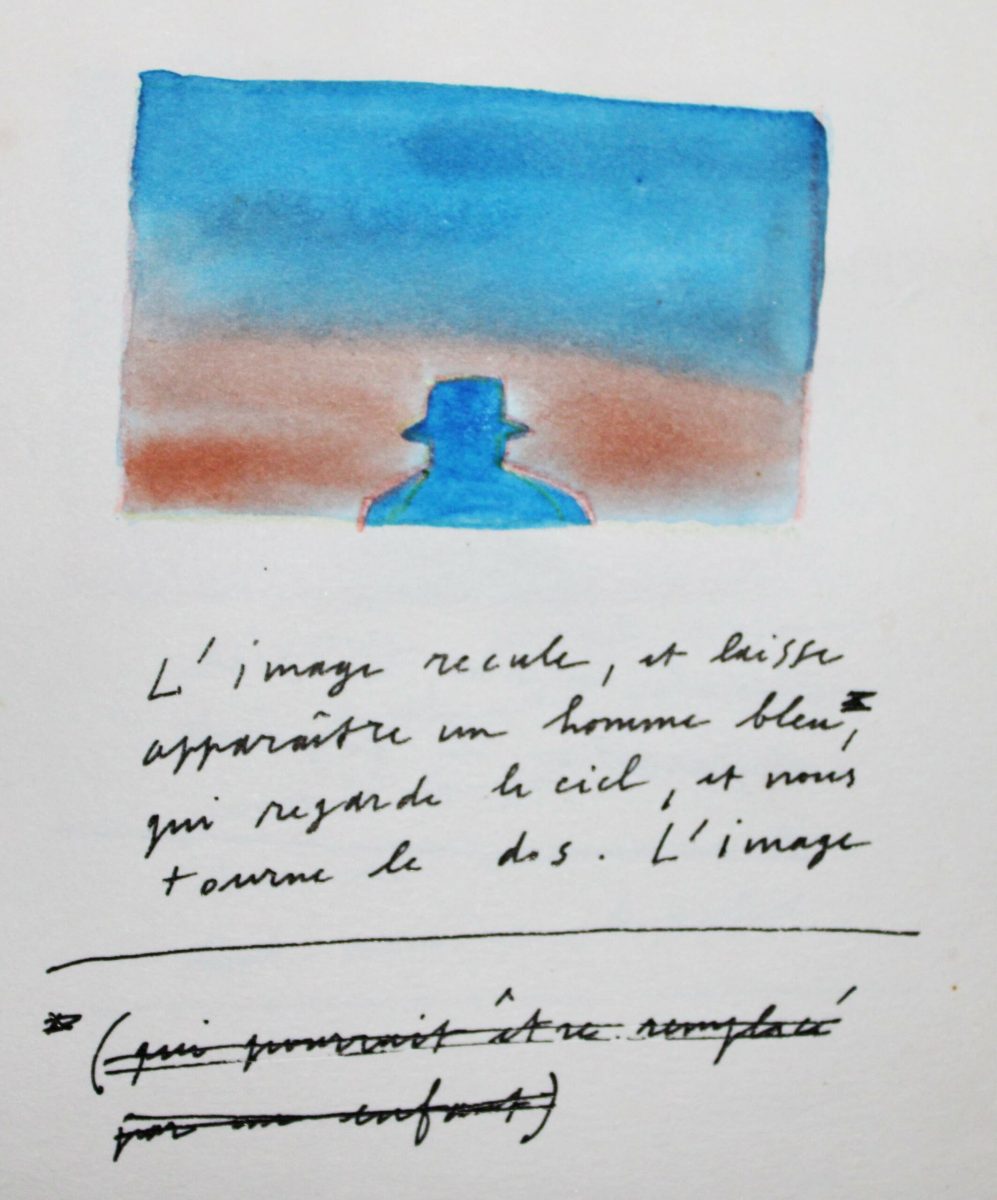 L'image recule, et laisse
apparaître un homme bleu*,
qui regarde le ciel, et nous
tourne le dos. L'image
* (qui pourrait être remplacé
par un enfant)